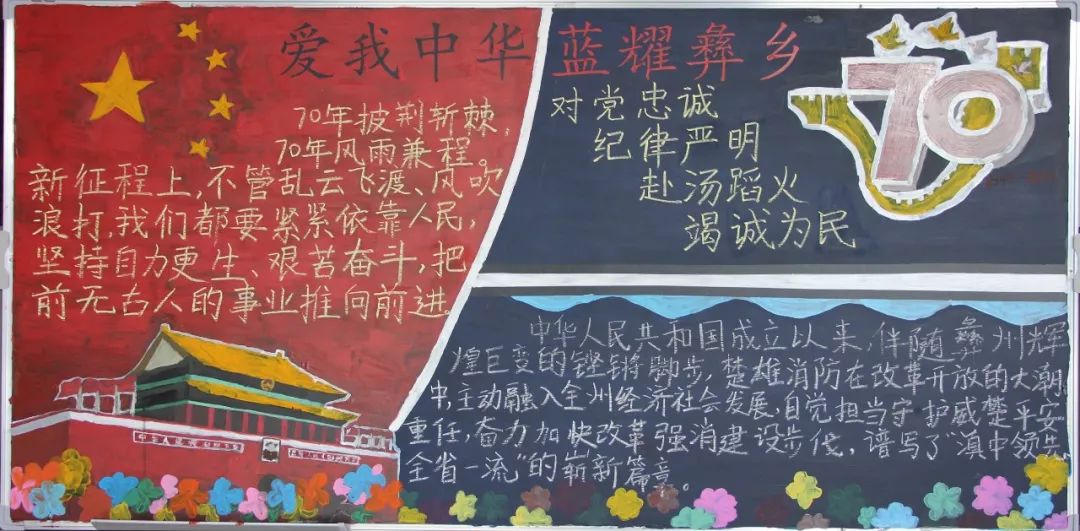 爱我中华
70年披荆斩棘,
70年风雨兼程。
新征程上,不管乱云飞渡、风吹
浪打,我们都要紧紧依靠人民,
坚持自力更生、艰苦奋斗,把
前无古人的事业推向前进
蓝耀彝乡
对党忠诚
纪律严明
赴汤蹈火
竭诚为民
70
中华人民共和国成立以来,伴随彝州辉
煌巨变的铿锵脚步,楚雄消防在改革开放的大潮
中,主动融入全州经济社会发展,自觉担当守护威楚平安
重任,奋力加快改革强消建设步伐,谱写了“滇中领先
全省一流”的崭新篇章。